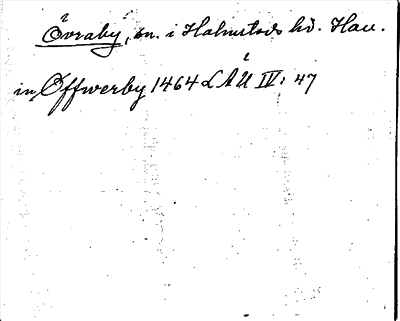 Övraby, sn. i Halmstads hd. Hall.
in Öffwerby 1464 LÅÜ IV: 47